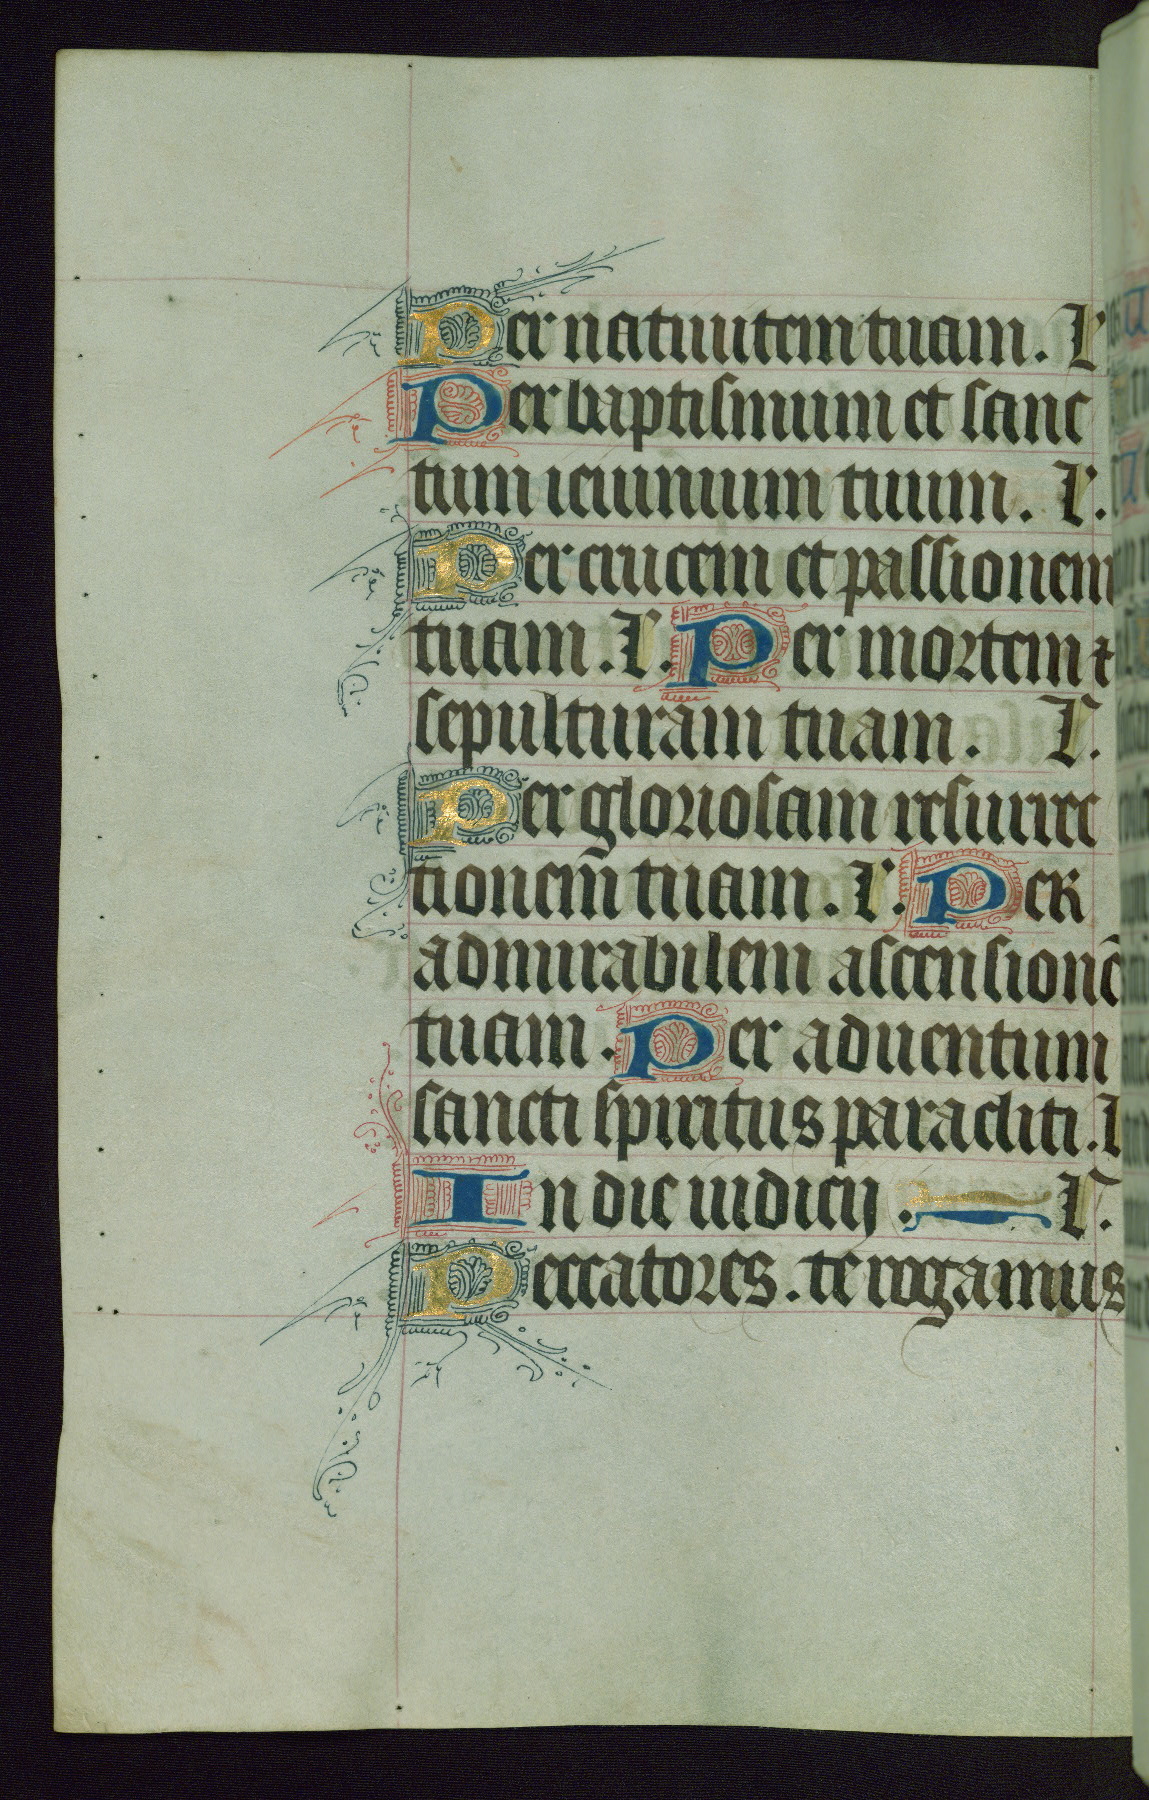 Per natiuitem tuam. L
Per baptismum et sanc
tum ieiunium tuum. L.
Per crucem et passionem
tuam. L. Per mortem ⁊
sepulturam tuam. L.
Per gloriosam resurrec
tionem̄ tuam. L. Per
admirabilem ascensionē
tuam. Per aduentum
sancti spiritus paracliti. L
In die iudicij. L.
Peccatores. te rogamus